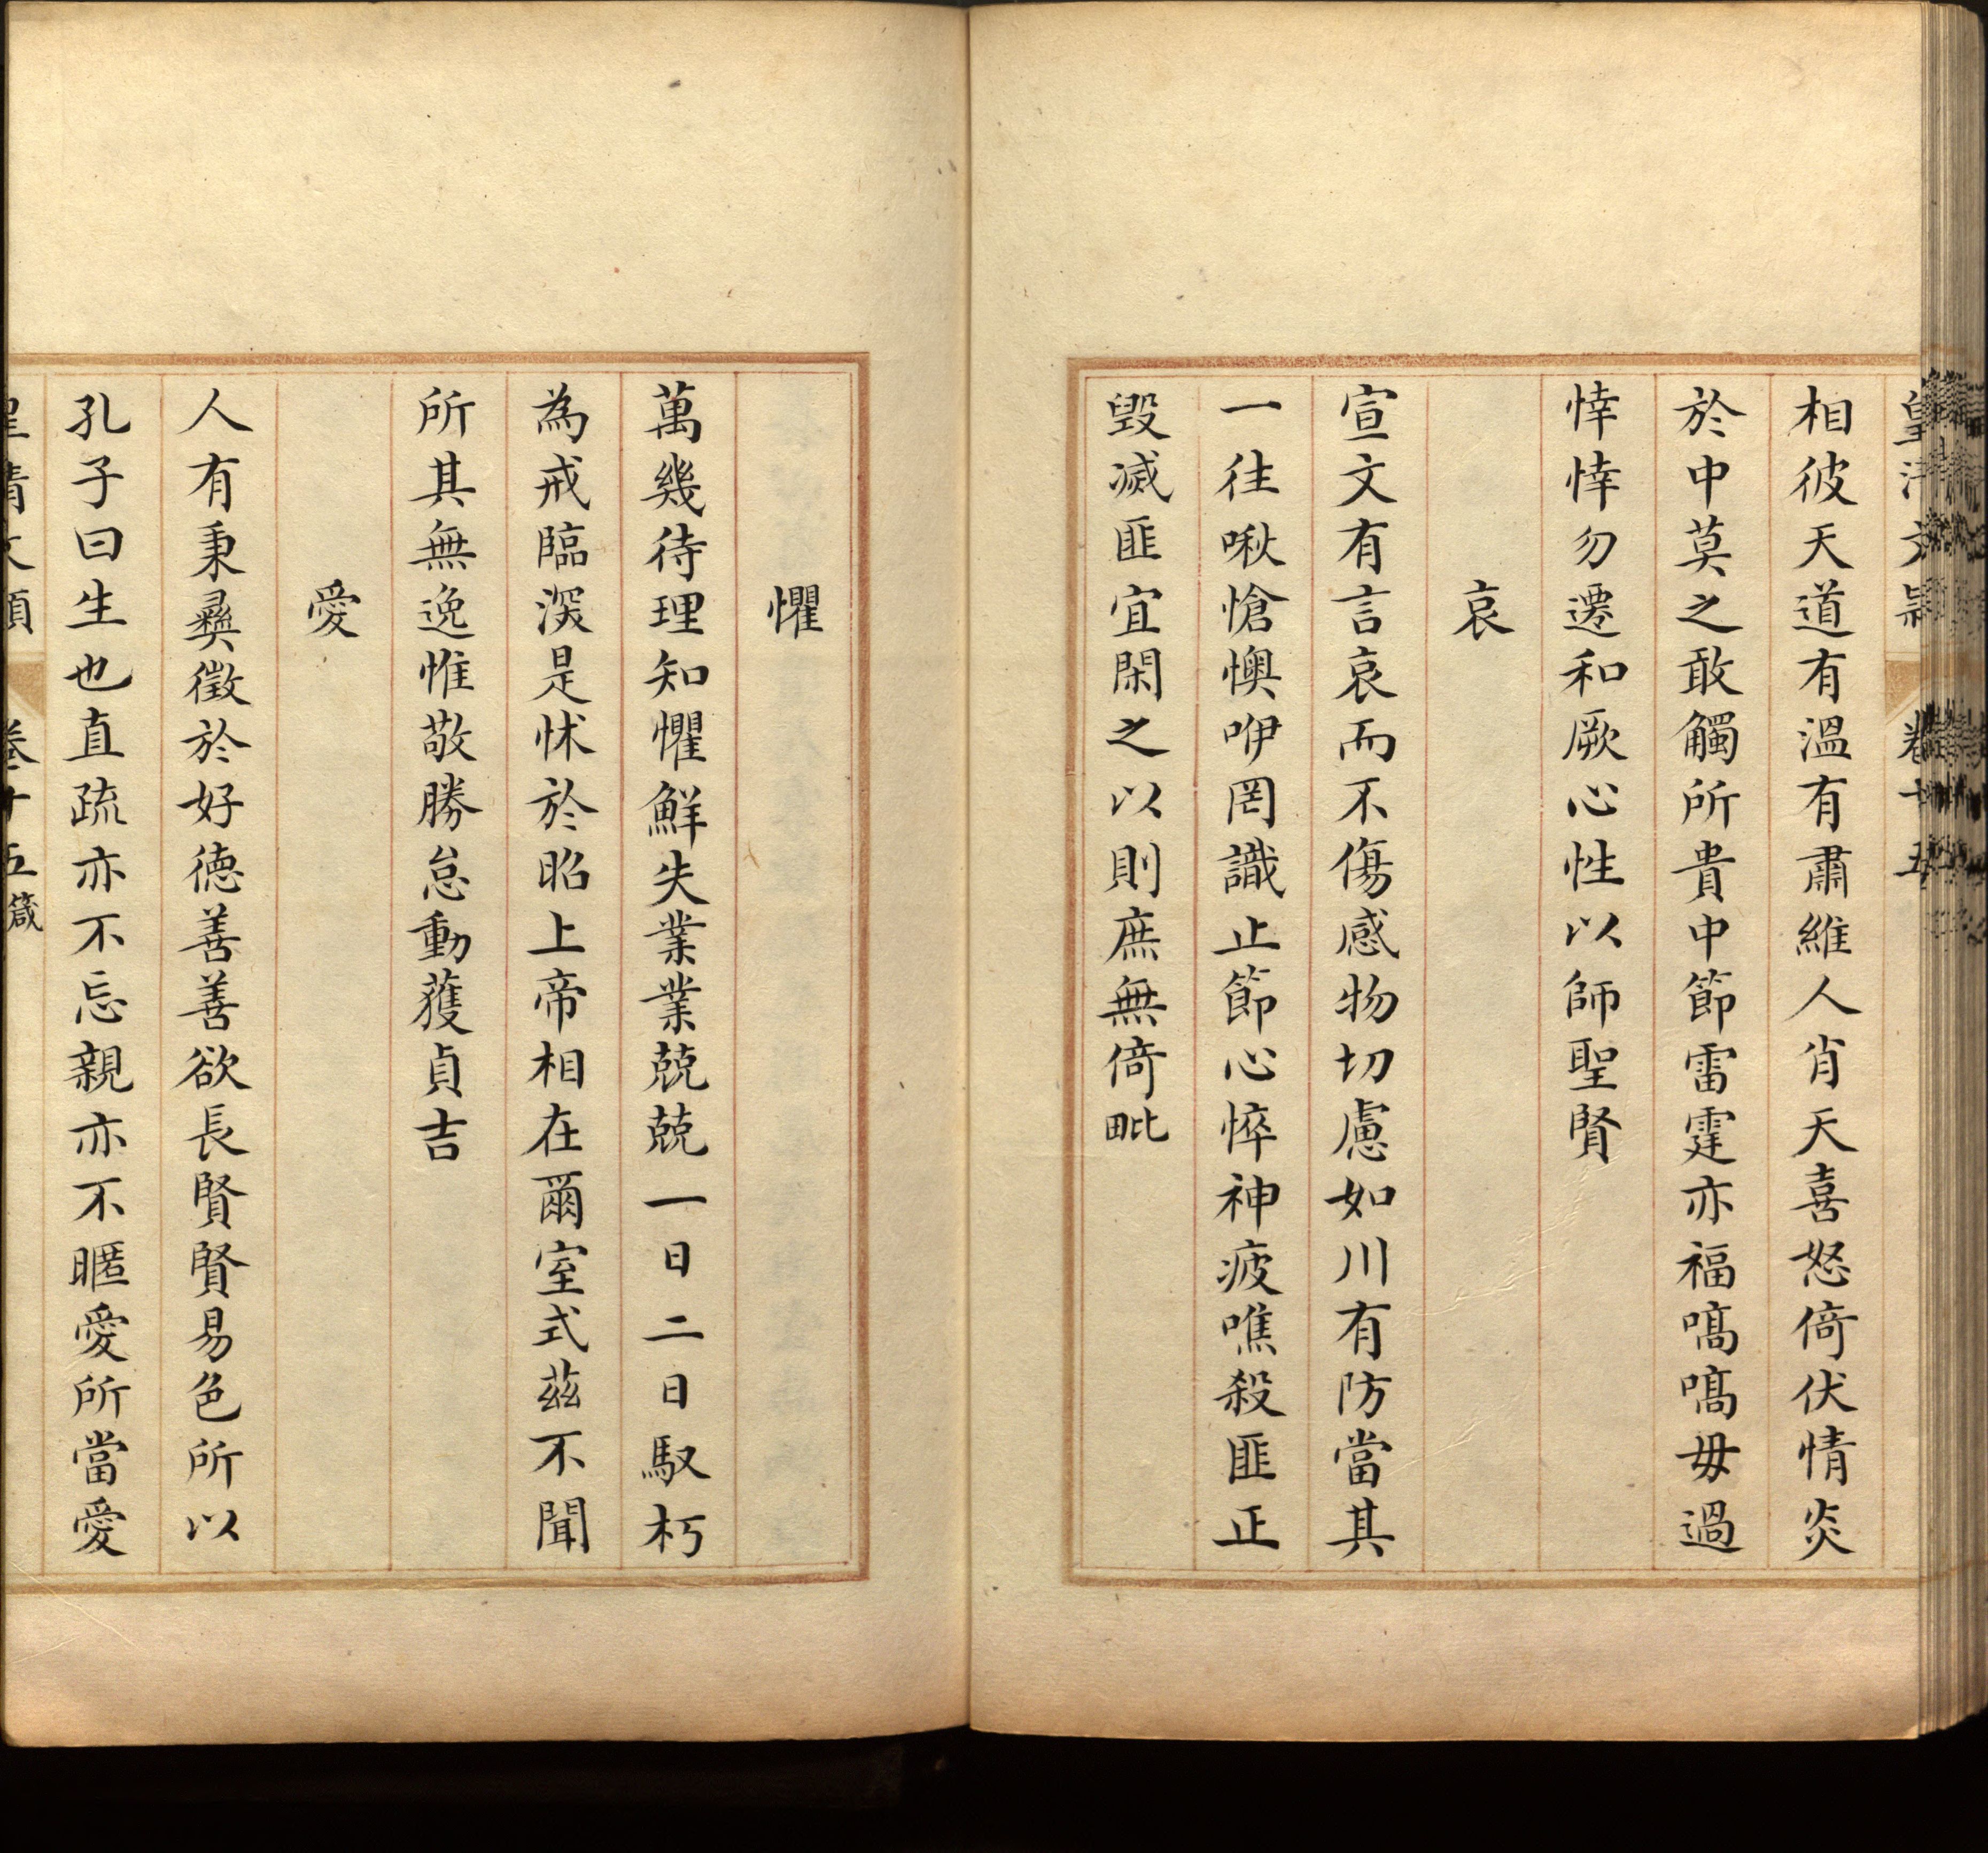 皇清文穎 卷十五
相彼天道有溫有肅維人肖天喜怒倚伏情炎
於中莫之敢觸所貴中節雷霆亦福嗃嗃毋過
悻悻勿遷和厥心性以師聖賢
哀
宣文有言哀而不傷感物切慮如川有防當其
一往啾愴懊咿罔識止節心悴神疲噍殺匪正
毀滅匪宜閑之以則庶無倚毗
懼
萬幾待理知懼鮮失業業兢兢一日二日馭朽
為戒臨深是怵於昭上帝相在爾室式茲不聞
所其無逸惟敬勝怠動獲貞吉
愛
人有秉彝徵於好德善善欲長賢賢易色所以
孔子曰生也直疏亦不忘親亦不暱愛所當愛
皇清文穎 卷十五箴